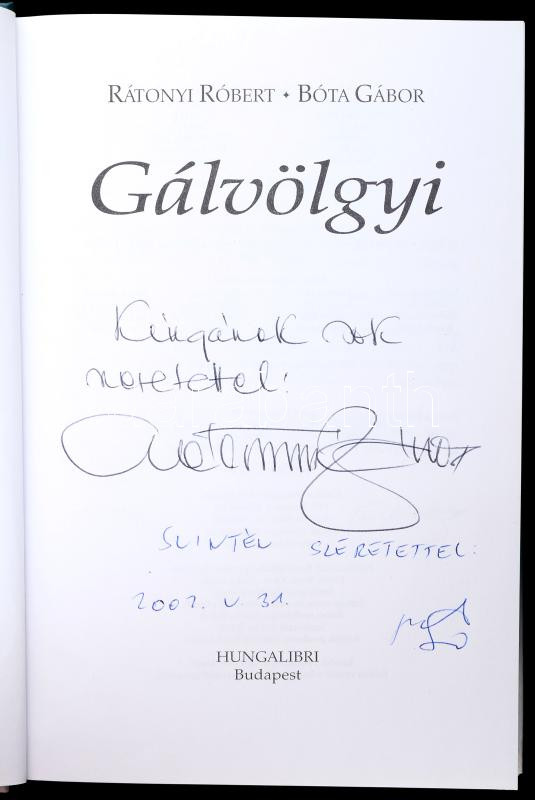 RÁTONYI RÓBERT • BÓTA GÁBOR
Gálvölgyi
Kingának sok
szeretettel:
SZINTÉN SZERETETTEL:
2002. V. 31.
HUNGALIBRI
Budapest